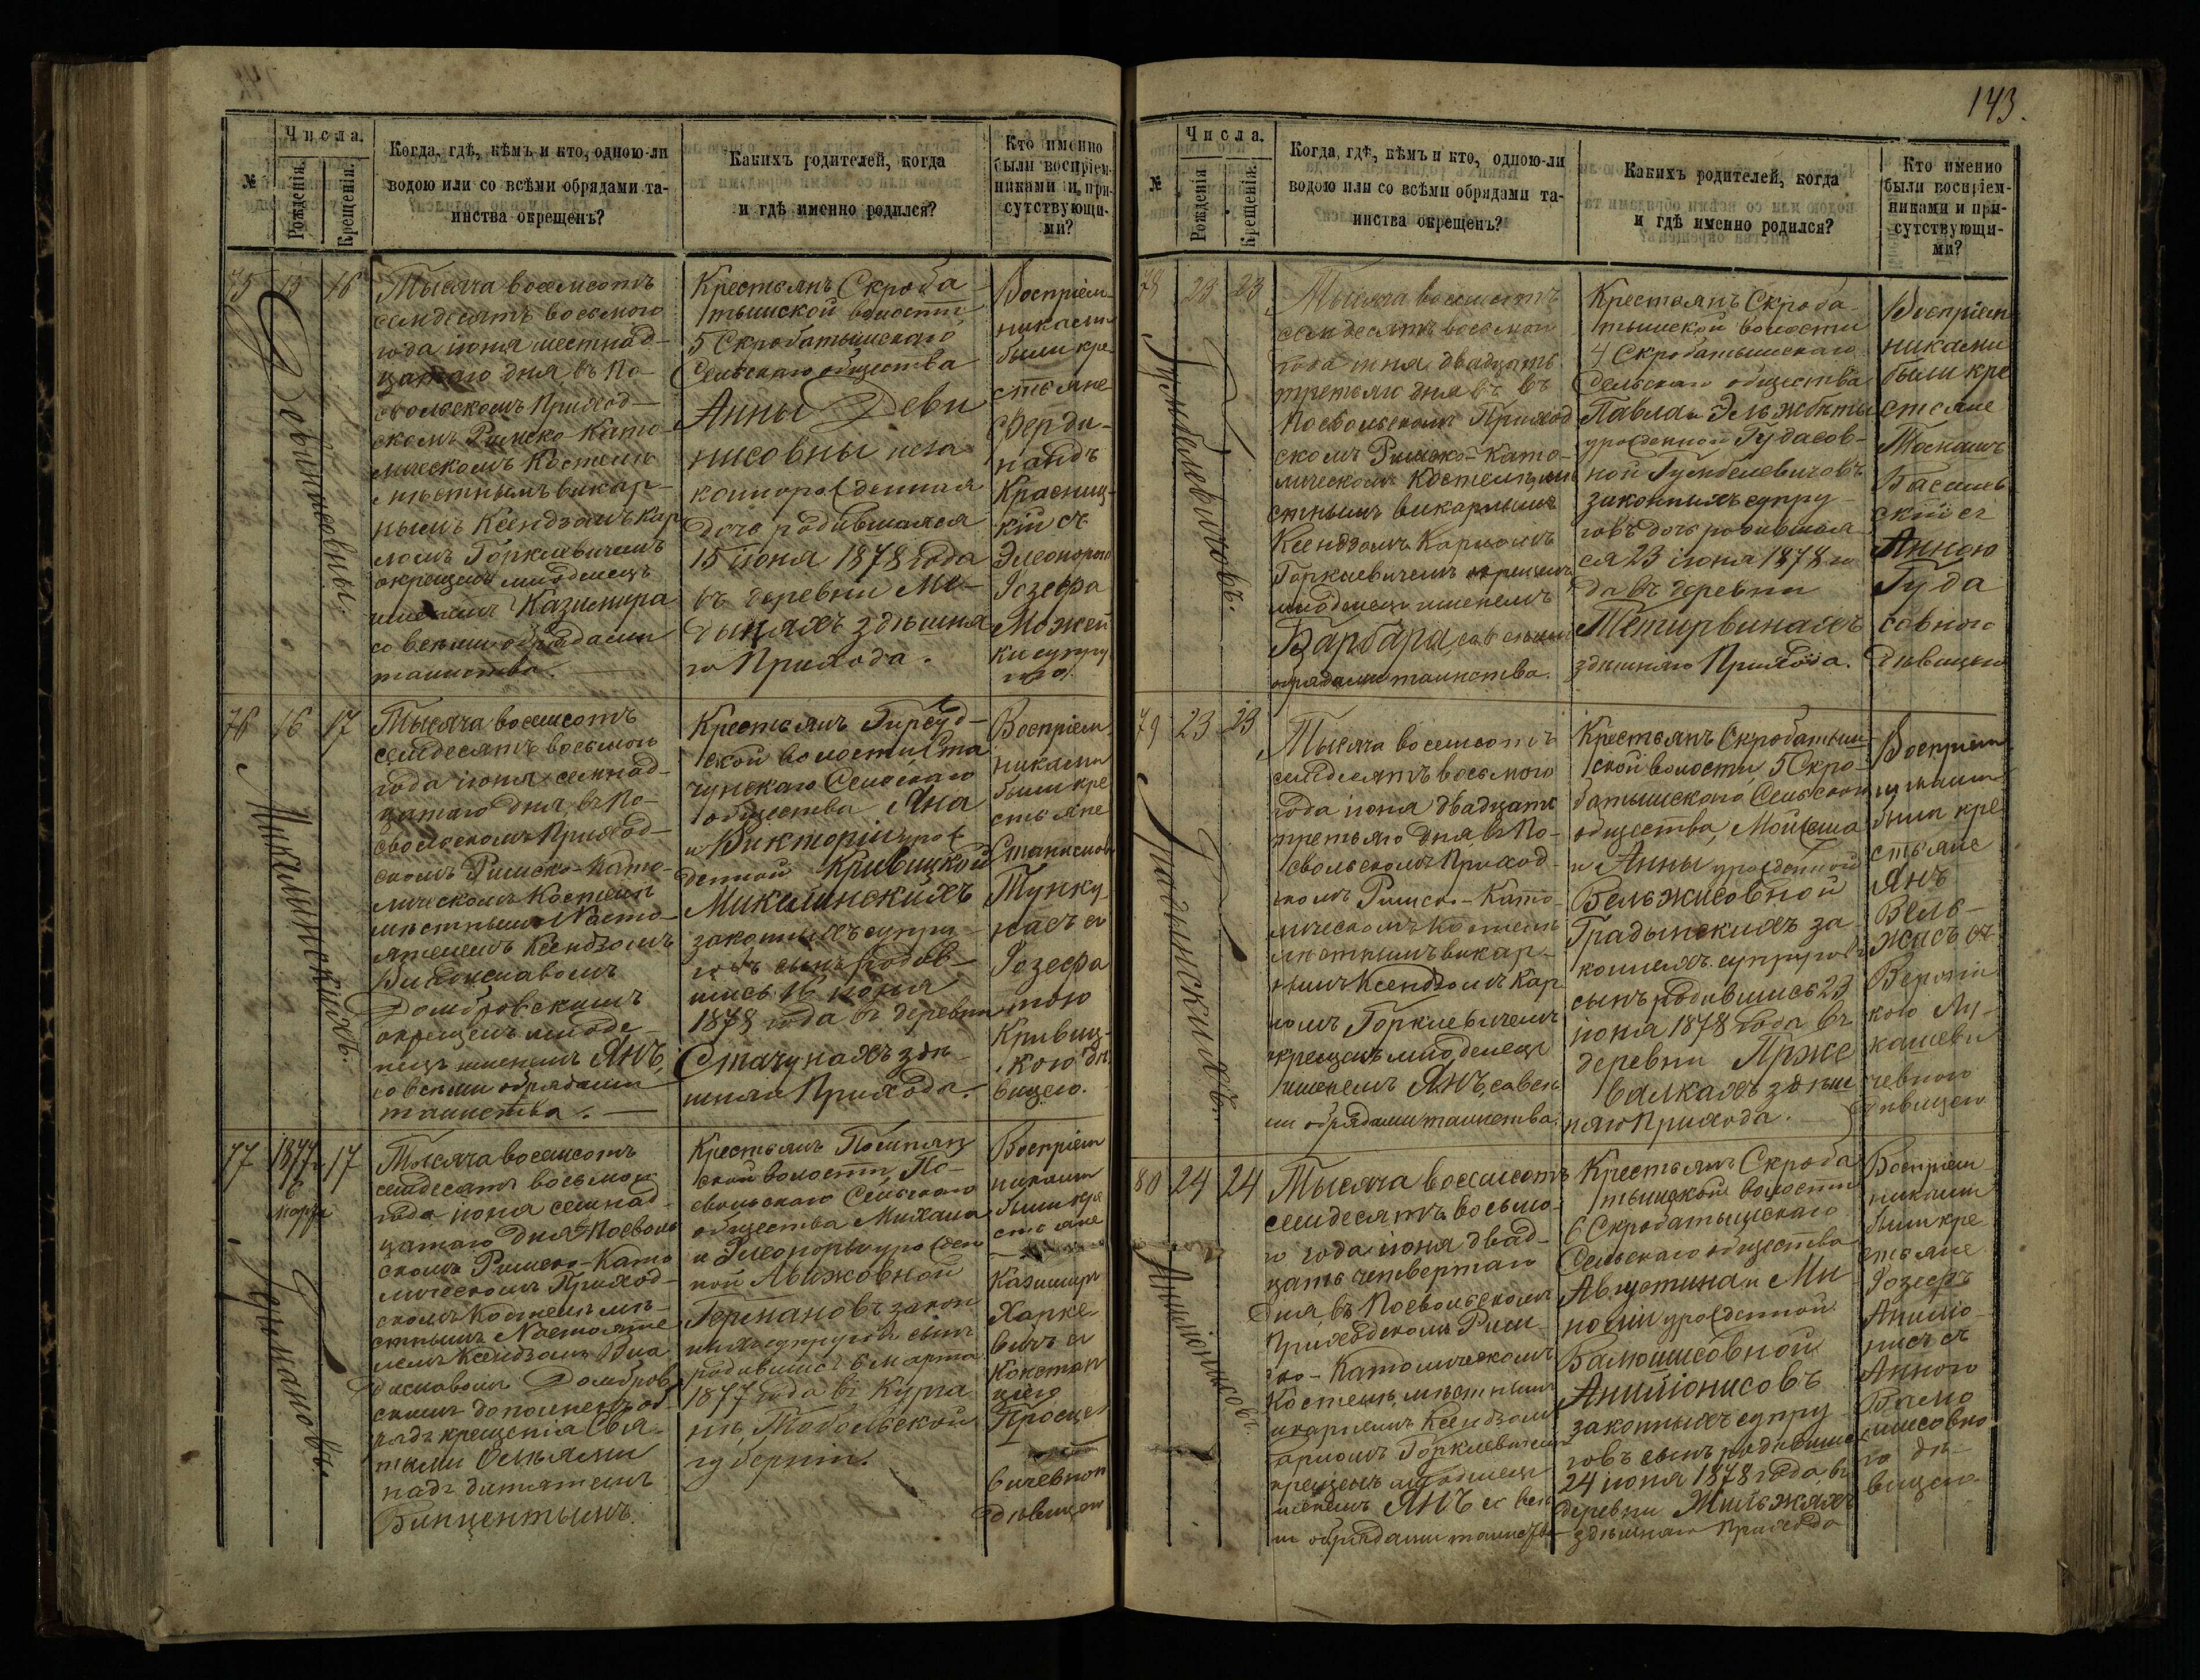 143.
№
Числа.
Рожденія.
Крещенія.
Когда, гдѣ, кѣмъ и кто, одною-ли
водою или со всѣми обрядами та-
инства окрещенъ?
Какихъ родителей, когда
и гдѣ именно родился?
Кто именно
были воспріем-
никами и при-
сутствующи-
ми?
75
15
16
Тысяча восемсотъ
семдесятъ восьмого
года іюня шестнад-
цатаго дня въ По-
свольскомъ Приход-
скомъ Римско-Като-
лическомъ Костелѣ
мѣстнымъ викар-
нымъ Ксендзомъ Кар
ломъ Горклевичемъ
окрещенъ младенецъ
именемъ Казимира
со всѣми обрядами
таинства.
Крестьянъ Скроба-
тышской волости
5 Скробатышскаго
Сельскаго общества
Анны Деви
нисовны неза
коннорожденная
дочь родившаяся
15 іюня 1878 года
въ деревни Ме-
дыняхъ здѣшня
го Прихода.
Воспріем-
никами
были кре-
стьяне
Ферди-
нандъ
Красниц-
кій съ
Элеонорою
Іозефа
Можей
ки супру
гою.
76
16
17
Микалинскихъ.
Тысяча восемсотъ
семдесятъ восьмого
года іюня семнад-
цатаго дня въ По-
свольскомъ Приход-
скомъ Римско-Като-
лическомъ Костелѣ
мѣстнымъ Насто-
ятелемъ Ксендзомъ
Владиславомъ
Домбровскимъ
окрещенъ младе-
нецъ именемъ Янъ,
со всѣми обрядами
таинства.
Крестьянъ Гирсуд-
ской волости, Ста
чунскаго Сельскаго
общества Яна
и Викторіи урож
денной Кривицкой
Микалинскихъ
законныхъ супру-
говъ сынъ родив-
шись 16 іюня
1878 года въ деревни
Стачунахъ здѣ-
шняго Прихода.
Воспріем-
никами
были кре
стьяне
Станиславъ
Тунку
насъ съ
Іозефа
тою
Кривиц-
кою дѣ
вицею.
77
1877 г.
6
марта
17
Германовъ.
Тысяча восемсотъ
семдесятъ восьмого
года іюня семнад-
цатаго дня въ Посволь
скомъ Римско-Като
лическомъ Приход-
скомъ Костелѣ мѣ-
стнымъ Настояте
лемъ Ксендзомъ Вла
диславомъ Домбров
скимъ дополненъ об
рядъ крещенія Свя-
тыми Олѣями
надъ дитятемъ
Винцентымъ.
Крестьянъ Помпян
ской волости, По-
свольскаго Сельскаго
общества Михаила
и Элеоноры урожден
ной Лыжовной
Германовъ закон
ныхъ супруговъ сынъ
родившись 6 марта
1877 года въ Курга
нѣ, Тобольской
губерніи.
Воспріем
никами
были кре
стьяне
Казимиръ
Харке
вичъ съ
Констан
ціею
Процке
вичевною
дѣвицею
№
Числа.
Рожденія.
Крещенія.
Когда, гдѣ, кѣмъ и кто, одною-ли
водою или со всѣми обрядами та-
инства окрещенъ?
Какихъ родителей, когда
и гдѣ именно родился?
Кто именно
были воспріем-
никами и при-
сутствующи-
ми?
78
23
23
Гумбелевичовъ.
Тысяча восемсотъ
семдесятъ восьмого
года іюня двадцать
третьяго дня въ
Посвольскомъ Приход
скомъ Римско-Като-
лическомъ Костелѣ мѣ
стнымъ викарнымъ
Ксендзомъ Карломъ
Горклевичемъ окрещенъ
младенецъ именемъ
Барбара, со всѣми
обрядами таинства.
Крестьянъ Скроба-
тышской волости
4 Скробатышскаго
Сельскаго общества
Павла и Эльжбеты
урожденной Гудасов-
ной Гумбелевичовъ
законныхъ супру-
говъ дочь родившая
ся 23 іюня 1878 го
да въ деревни
Тетирвинахъ
здѣшняго Прихода.
Воспріем
никами
были кре
стьяне
Басинь
скій съ
Анною
Гуда
совною
дѣвицею
79
23
23
Градынскихъ.
Тысяча восемсотъ
семдесятъ восьмого
года іюня двадцать
третьяго дня, въ По-
свольскомъ Приход-
скомъ Римско-Като-
лическомъ Костелѣ
мѣстнымъ викар-
нымъ Ксендзомъ Кар
ломъ Горклевичемъ
окрещенъ младенецъ
именемъ Янъ, со всѣ
ми обрядами таинства.
Крестьянъ Скробатыш
ской волости, 5 Скро-
батышскаго Сельскаго
общества, Мойжеша
и Анны урожденной
Вельжисовной
Градынскихъ за-
конныхъ супруговъ
сынъ родившись 23
іюня 1878 года въ
деревни Прже
валкахъ здѣш
няго Прихода.
Воспріем
никами
были кре
стьяне
Янъ
Вель-
жисъ съ
Верони
кою Лу-
кашеви
чевною
дѣвицею
80
24
24
Анилюнисовъ.
Тысяча восемсотъ
семдесятъ восьмо-
го года іюня двад-
цать четвертаго
дня, въ Посвольскомъ
Приходскомъ Рим-
ско-Католическомъ
Костелѣ мѣстнымъ
викарнымъ Ксендзомъ
Карломъ Горклевичемъ
окрещенъ младенецъ
именемъ Янъ со всѣ
ми обрядами таинства
Крестьянъ Скроба
тышской волости
6 Скробатышскаго
Сельскаго общества
Августина и Ми
халины урожденной
Балюлисовной
Анилюнисовъ
законныхъ супру
говъ сынъ родившись
24 іюня 1878 года въ
деревни Жильжяхъ
здѣшняго Прихода
Воспріем
никами
были кре
стьяне
Іозефъ
Анилю-
нисъ съ
Анною
Балю
лисовно
ю дѣ-
вицею